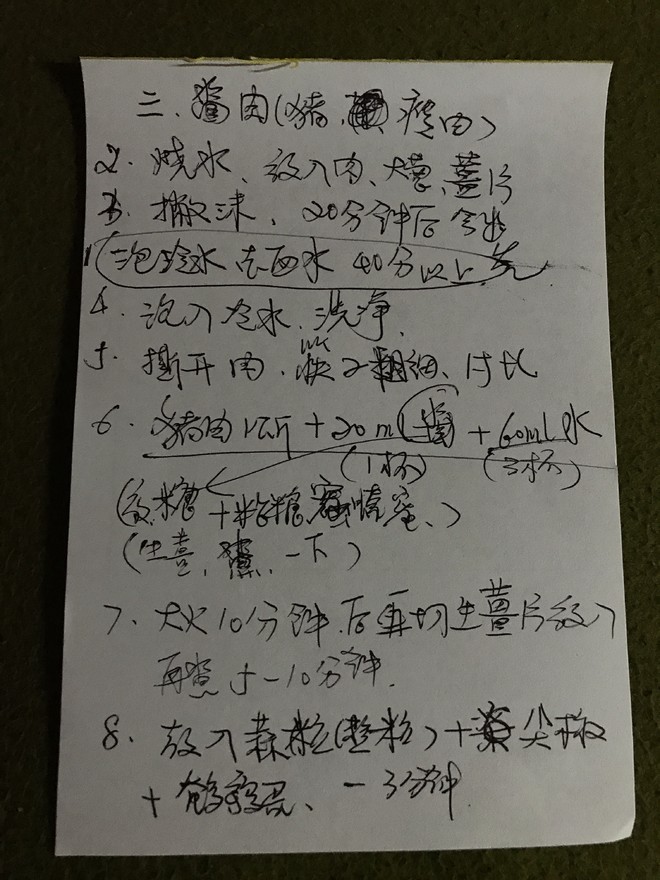 三. 酱肉(豬 瘦肉)
2. 烧水、放入肉、大葱、薑片
3. 撇沫、20分钟后
1 泡冷水 去血水 40分以上
4. 泡入冷水、洗净.
5. 撕开肉.
6. 豬肉1公斤 + 20ml + 60ml水
(1杯) (3杯)
(放 糖 + )
(生薑, 一下)
7. 大火10分钟.后再切生薑片放入
再煮5-10分钟.
8. 放入蒜粒(整粒)+ 尖椒
+ 鹌鹑蛋、一3分钟